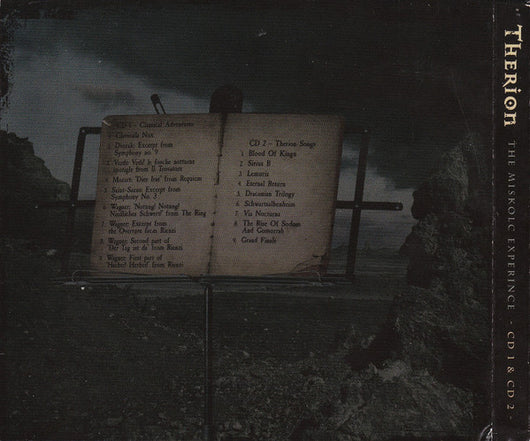 CD 1 - Classical Adventures
1. Clavicula Nox
2. Dvorák: Excerpt from
Symphony no. 9
3. Verdi: Vedi! le fosche notturne
spoglie from Il Trovatore
4. Mozart: "Dies Irae" from Requiem
5. Saint-Saens: Excerpt from
Symphony No. 3
6. Wagner: "Notung! Notung!
Niedliches Schwert!" from The Ring
7. Wagner: Excerpt from
the Overture from Rienzi
8. Wagner: Second part of
"Der Tag ist da" from Rienzi
9. Wagner: First part of
"Herbei! Herbei!" from Rienzi
CD 2 - Therion Songs
1. Blood Of Kingu
2. Sirius B
3. Lemuria
4. Eternal Return
5. Draconian Trilogy
6. Schwarzalbenheim
7. Via Nocturna
8. The Rise Of Sodom
And Gomorrah
9. Grand Finale
Therion
THE MISKOLC EXPERINCE - CD 1 & CD 2 -